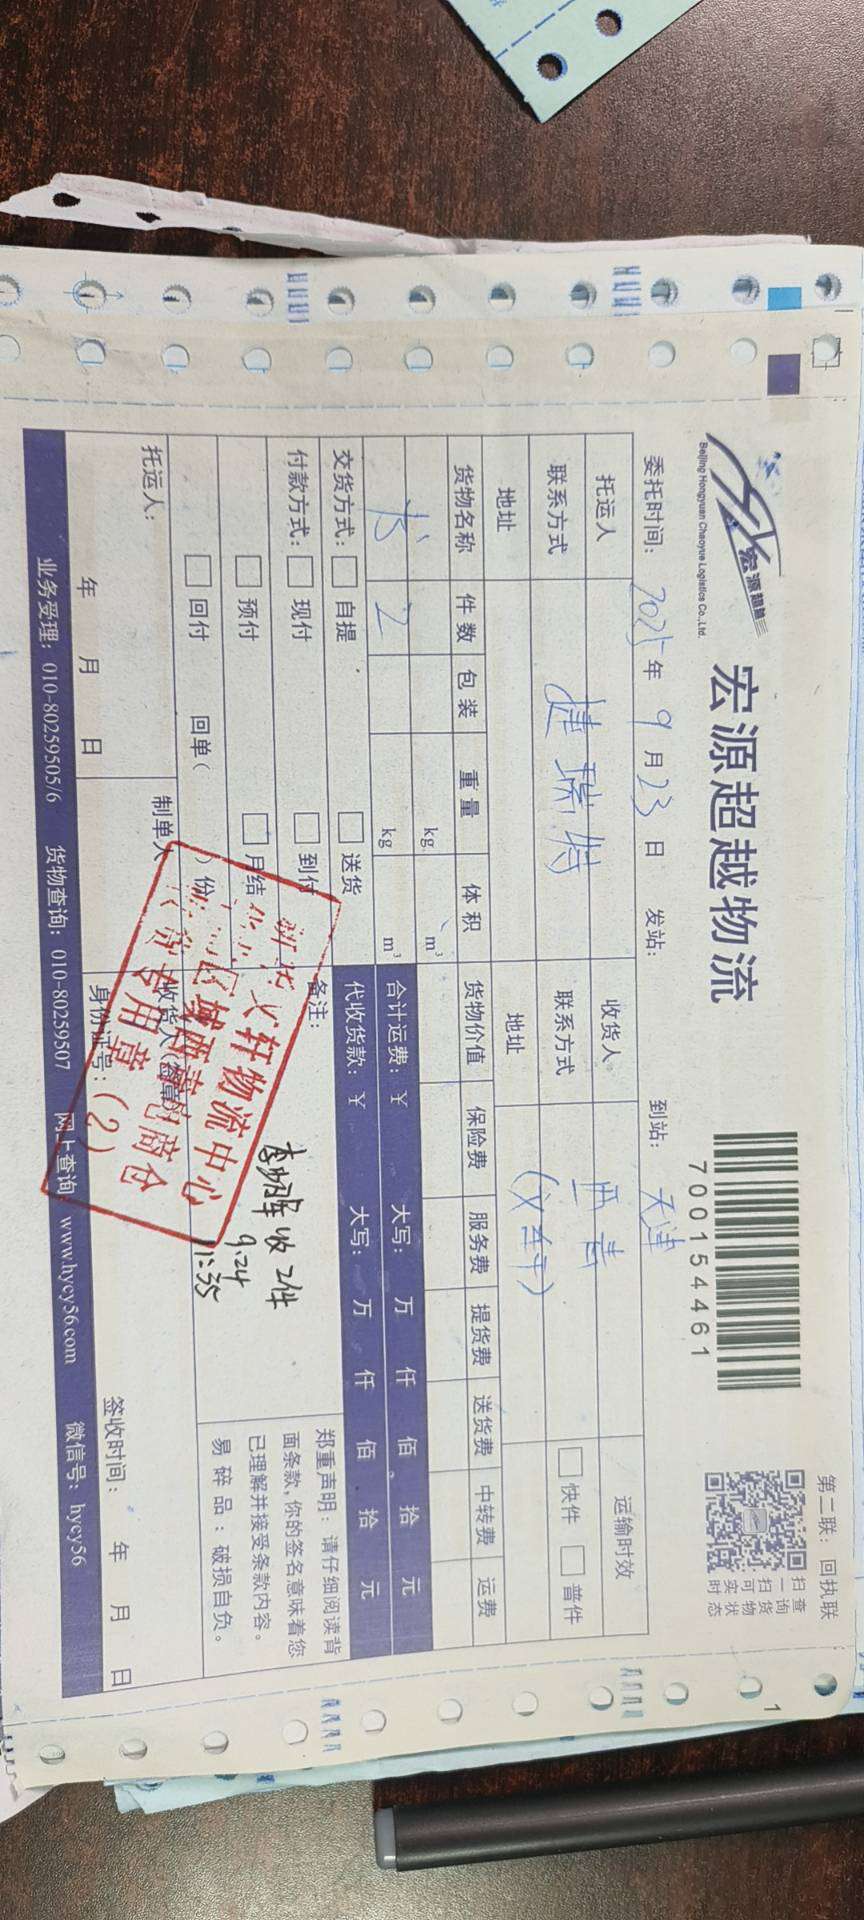 宏源超越
Beijing Hongyuan Chaoyue Logistics Co.,Ltd.
宏源超越物流
7000154461
第二联：回执联
扫一扫可实时
查询货物状态
委托时间：2025年9月23日 发站： 到站：天津
托运人 收货人 运输时效
捷瑞特 西青
联系方式 联系方式 快件 普件
地址 地址
货物名称 件数 包装 重量 体积 货物价值 保险费 服务费 提货费 送货费 中转费 运费
kg m³
书 2 kg m³ 合计运费：￥ 大写： 万 仟 佰 拾 元
交货方式： 自提 送货 代收货款：￥ 大写： 万 仟 佰 拾 元
付款方式： 现付 到付 备注：
预付 月结
回付 回单（ ）份
李 收2件
9.24
11:35
郑重声明：请仔细阅读背
面条款,你的签名意味着您
已理解并接受条款内容。
易碎品：破损自负。
托运人： 制单人 收货人(签章)
身份证号：
年 月 日 签收时间： 年 月 日
轩物流中心
仓
专用章(2)
业务受理：010-80259505/6 货物查询：010-80259507 网上查询 www.hycy56.com 微信号：hycy56
1